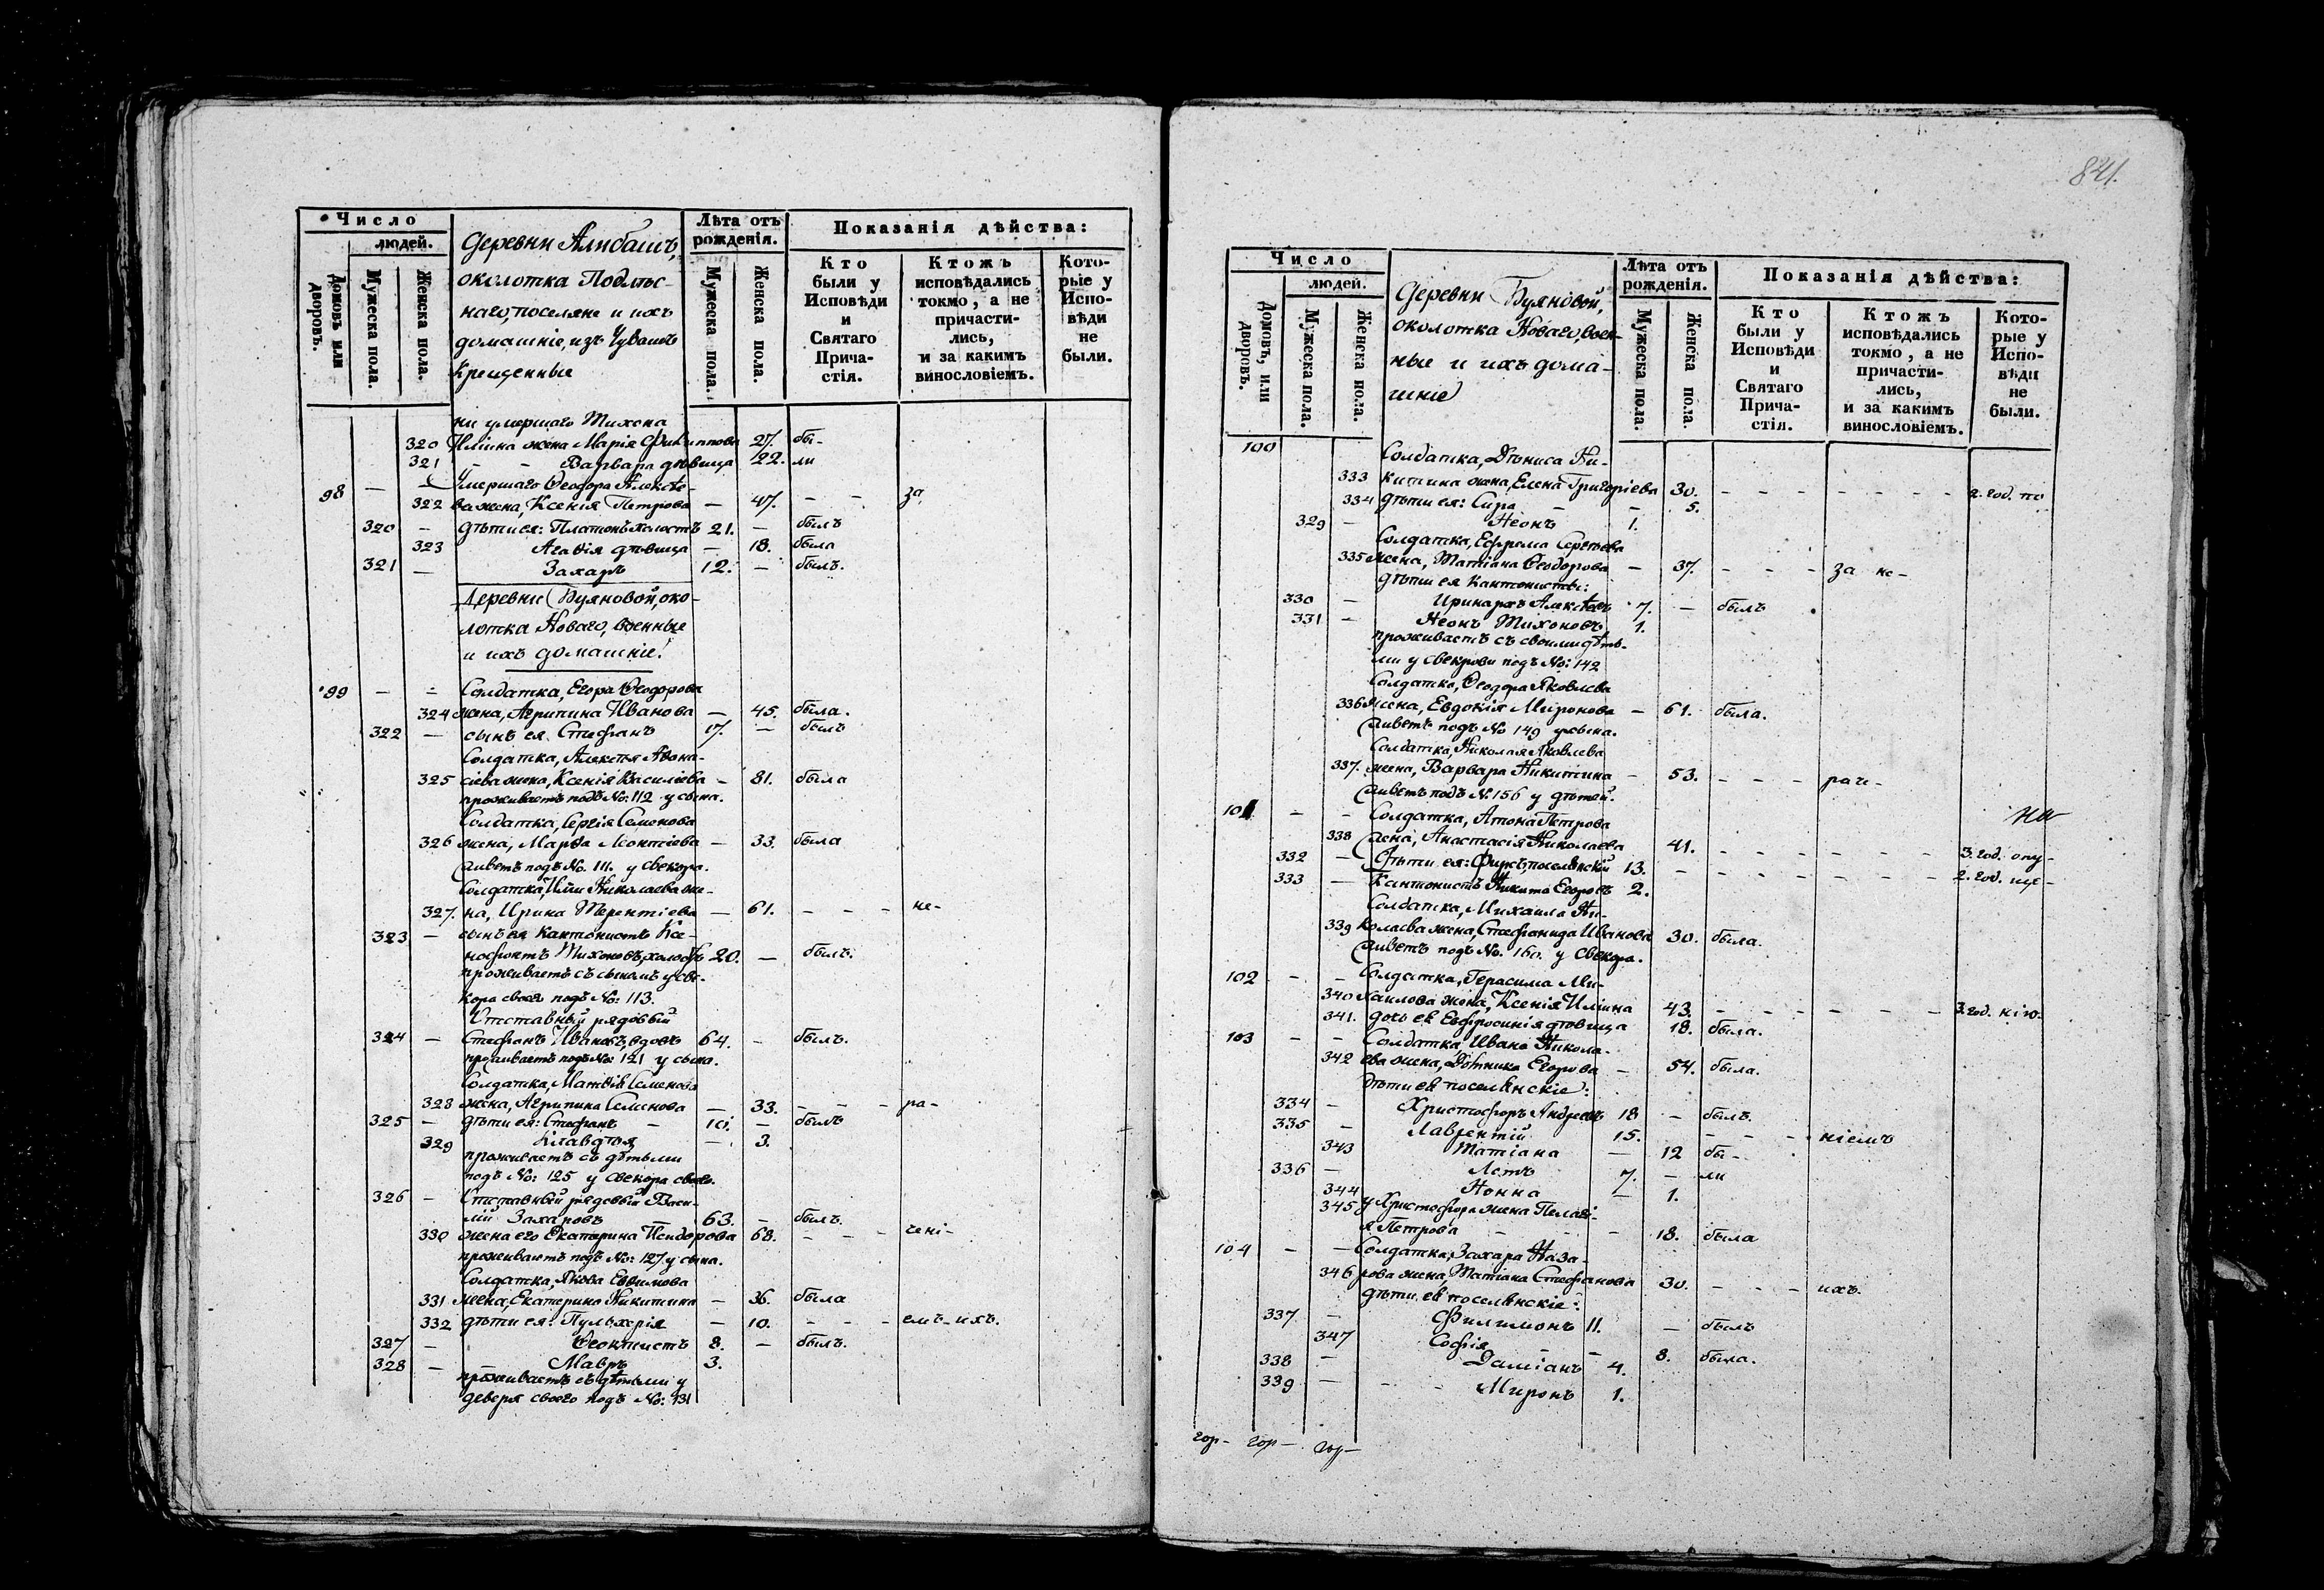 Число
людей.
Домовъ или дворовъ.
Мужеска пола.
Женска пола.
Деревни Алибашъ,
околотка Подлѣс-
наго, поселяне и ихъ
домашніе, изъ Чувашъ
Крещенные
Лѣта отъ рожденія.
Мужеска пола.
Женска пола.
Показанія дѣйства:
Кто были у Исповѣди и Святаго Прича-стія.
Ктожъ исповѣдались токмо, а не причасти-лись, и за какимъ винословіемъ.
Кото-рые у Испо-вѣди не были.
ни умершаго Тихона
320 Ильина жена Марія Филиппова 27. бы-
321 - - Варвара дѣвица 22. ли
98 — — Умершаго Ѳеодора Алексѣе-
322 ва жена, Ксенія Петрова — 47. - - за
320 — дѣти ея: Платонъ холостъ 21. — былъ
323 Агаѳія дѣвица — 18. была
321 — Захаръ 12. — былъ.
Деревни Буяновой, око-
лотка Новаго, военные
и ихъ домашніе.
99 — — Солдатка, Егора Ѳеодорова
324 жена, Агрипина Иванова — 45. была.
322 — сынъ ея Стефанъ 17. — былъ
Солдатка, Алексѣя Аѳона-
325 сіева жена, Ксенія Василіева — 81. была
проживаетъ подъ №: 112 у сына.
Солдатка, Сергія Семенова
326 жена, Марѳа Леонтіева — 33. была
живетъ подъ №. 111. у свекора.
Солдатка, Ильи Николаева же-
327. на, Ирина Терентіева — 61. - - - не-
323 — сынъ ея Кантонистъ Ксе-
нофонтъ Тихоновъ, холостъ 20. — былъ.
проживаетъ съ сыномъ у све-
кора своего подъ №: 113.
Отставный рядовый
324 — Стефанъ Ивановъ, вдовъ 64. - былъ.
проживаетъ подъ №: 121 у сына.
Солдатка, Матвѣя Семенова
328 жена, Агрипина Семенова — 33. - - - ра-
325 — дѣти ея: Стефанъ — 10. — былъ
329 Клавдія — 3.
проживаетъ съ дѣтьми
подъ №: 125 у свекора своего.
326 — Отставный рядовый Васи-
лій Захаровъ 63. - былъ.
330 жена его Екатерина Исидорова 68. - - - чені-
проживаютъ подъ №: 127 у сына.
Солдатка, Якова Евѳимова
331 жена, Екатерина Никитина — 36. была
332 дѣти ея: Пульхерія — 10. - - - емъ ихъ.
327 — Ѳеоктистъ 8. — былъ.
328 — — Мавръ 3.
проживаетъ съ дѣтьми у
деверя своего подъ №: 131
841.
Число
людей.
Домовъ, или дворовъ.
Мужеска пола.
Женска пола.
Деревни Буяновой,
околотка Новаго, воен-
ные и ихъ дома-
шніе
Лѣта отъ рожденія.
Мужеска пола.
Женска пола.
Показанія дѣйства:
Кто были у Исповѣди и Святаго Прича-стія.
Ктожъ исповѣдались токмо, а не причасти-лись, и за какимъ винословіемъ.
Кото-рые у Испо-вѣди не были.
100 Солдатка, Дѣниса Ни-
333 китина жена, Елена Григоріева 30. - - - - - - - 2. год. по
334 дѣти ея: Сира — — 5.
329 — Неонъ 1.
Солдатка, Ефрема Сергѣева
335 жена, Татіана Ѳеодорова — 37. - - - за не-
дѣти ея Кантонисты:
330 — Иринархъ Алексѣевъ 7. — былъ
331 — Неонъ Тихоновъ 1.
проживаетъ съ своими дѣть-
ми у свекрови подъ №: 142
Солдатка, Ѳеодора Яковлева
336 жена, Евдокія Миронова — 61. была.
живетъ подъ № 149 у сына.
Солдатка, Николая Яковлева
337. жена, Варвара Никитина — 53. - - - раче-
живетъ подъ №. 156 у дѣтей.
101 — - Солдатка, Антона Петрова
338 жена, Анастасія Николаева 41. - - - - - - 3. год. опу-
332 — дѣти ея: Фирсъ, поселянскій 13. - - - - - - - 2. год. ще-
333 — Кантонистъ Никита Егоровъ 2.
Солдатка, Михаила Ни-
339 колаева жена, Стефанида Иванова 30. была.
живетъ подъ №. 160. у свекора.
102 — - Солдатка, Герасима Ми-
340 хаилова жена, Ксенія Ильина 43. - - - - - - 3. год. нію.
341. дочь ея Евфросинія дѣвица 18. была.
103 - - Солдатка, Ивана Никола-
342 ева жена, Домника Егорова — 54. была.
дѣти ея поселянскіе:
334 — Христофоръ Андреевъ 18 — былъ.
335 — Лаврентій 15. - - - ніемъ
343 Татіана — 12 бы-
336 — Левъ 7. — ли
344 Нонна — 1.
345 у Христофора жена Пелагі-
я Петрова - - 18. была
104 — — Солдатка, Захара Наза-
346 рова жена, Татіана Стефанова 30. - - - ихъ.
дѣти ея поселянскіе:
337 — Филимонъ 11. — былъ
347 София - - 8. была.
338 — Даміанъ 4.
339 — - - Миронъ 1.
гор— гор— гор—